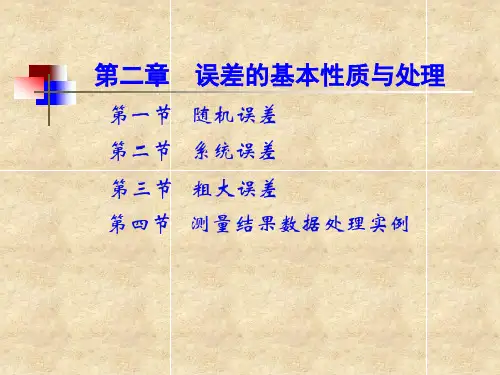 第二章 误差的基本性质与处理
第一节 随机误差
第二节 系统误差
第三节 粗大误差
第四节 测量结果数据处理实例